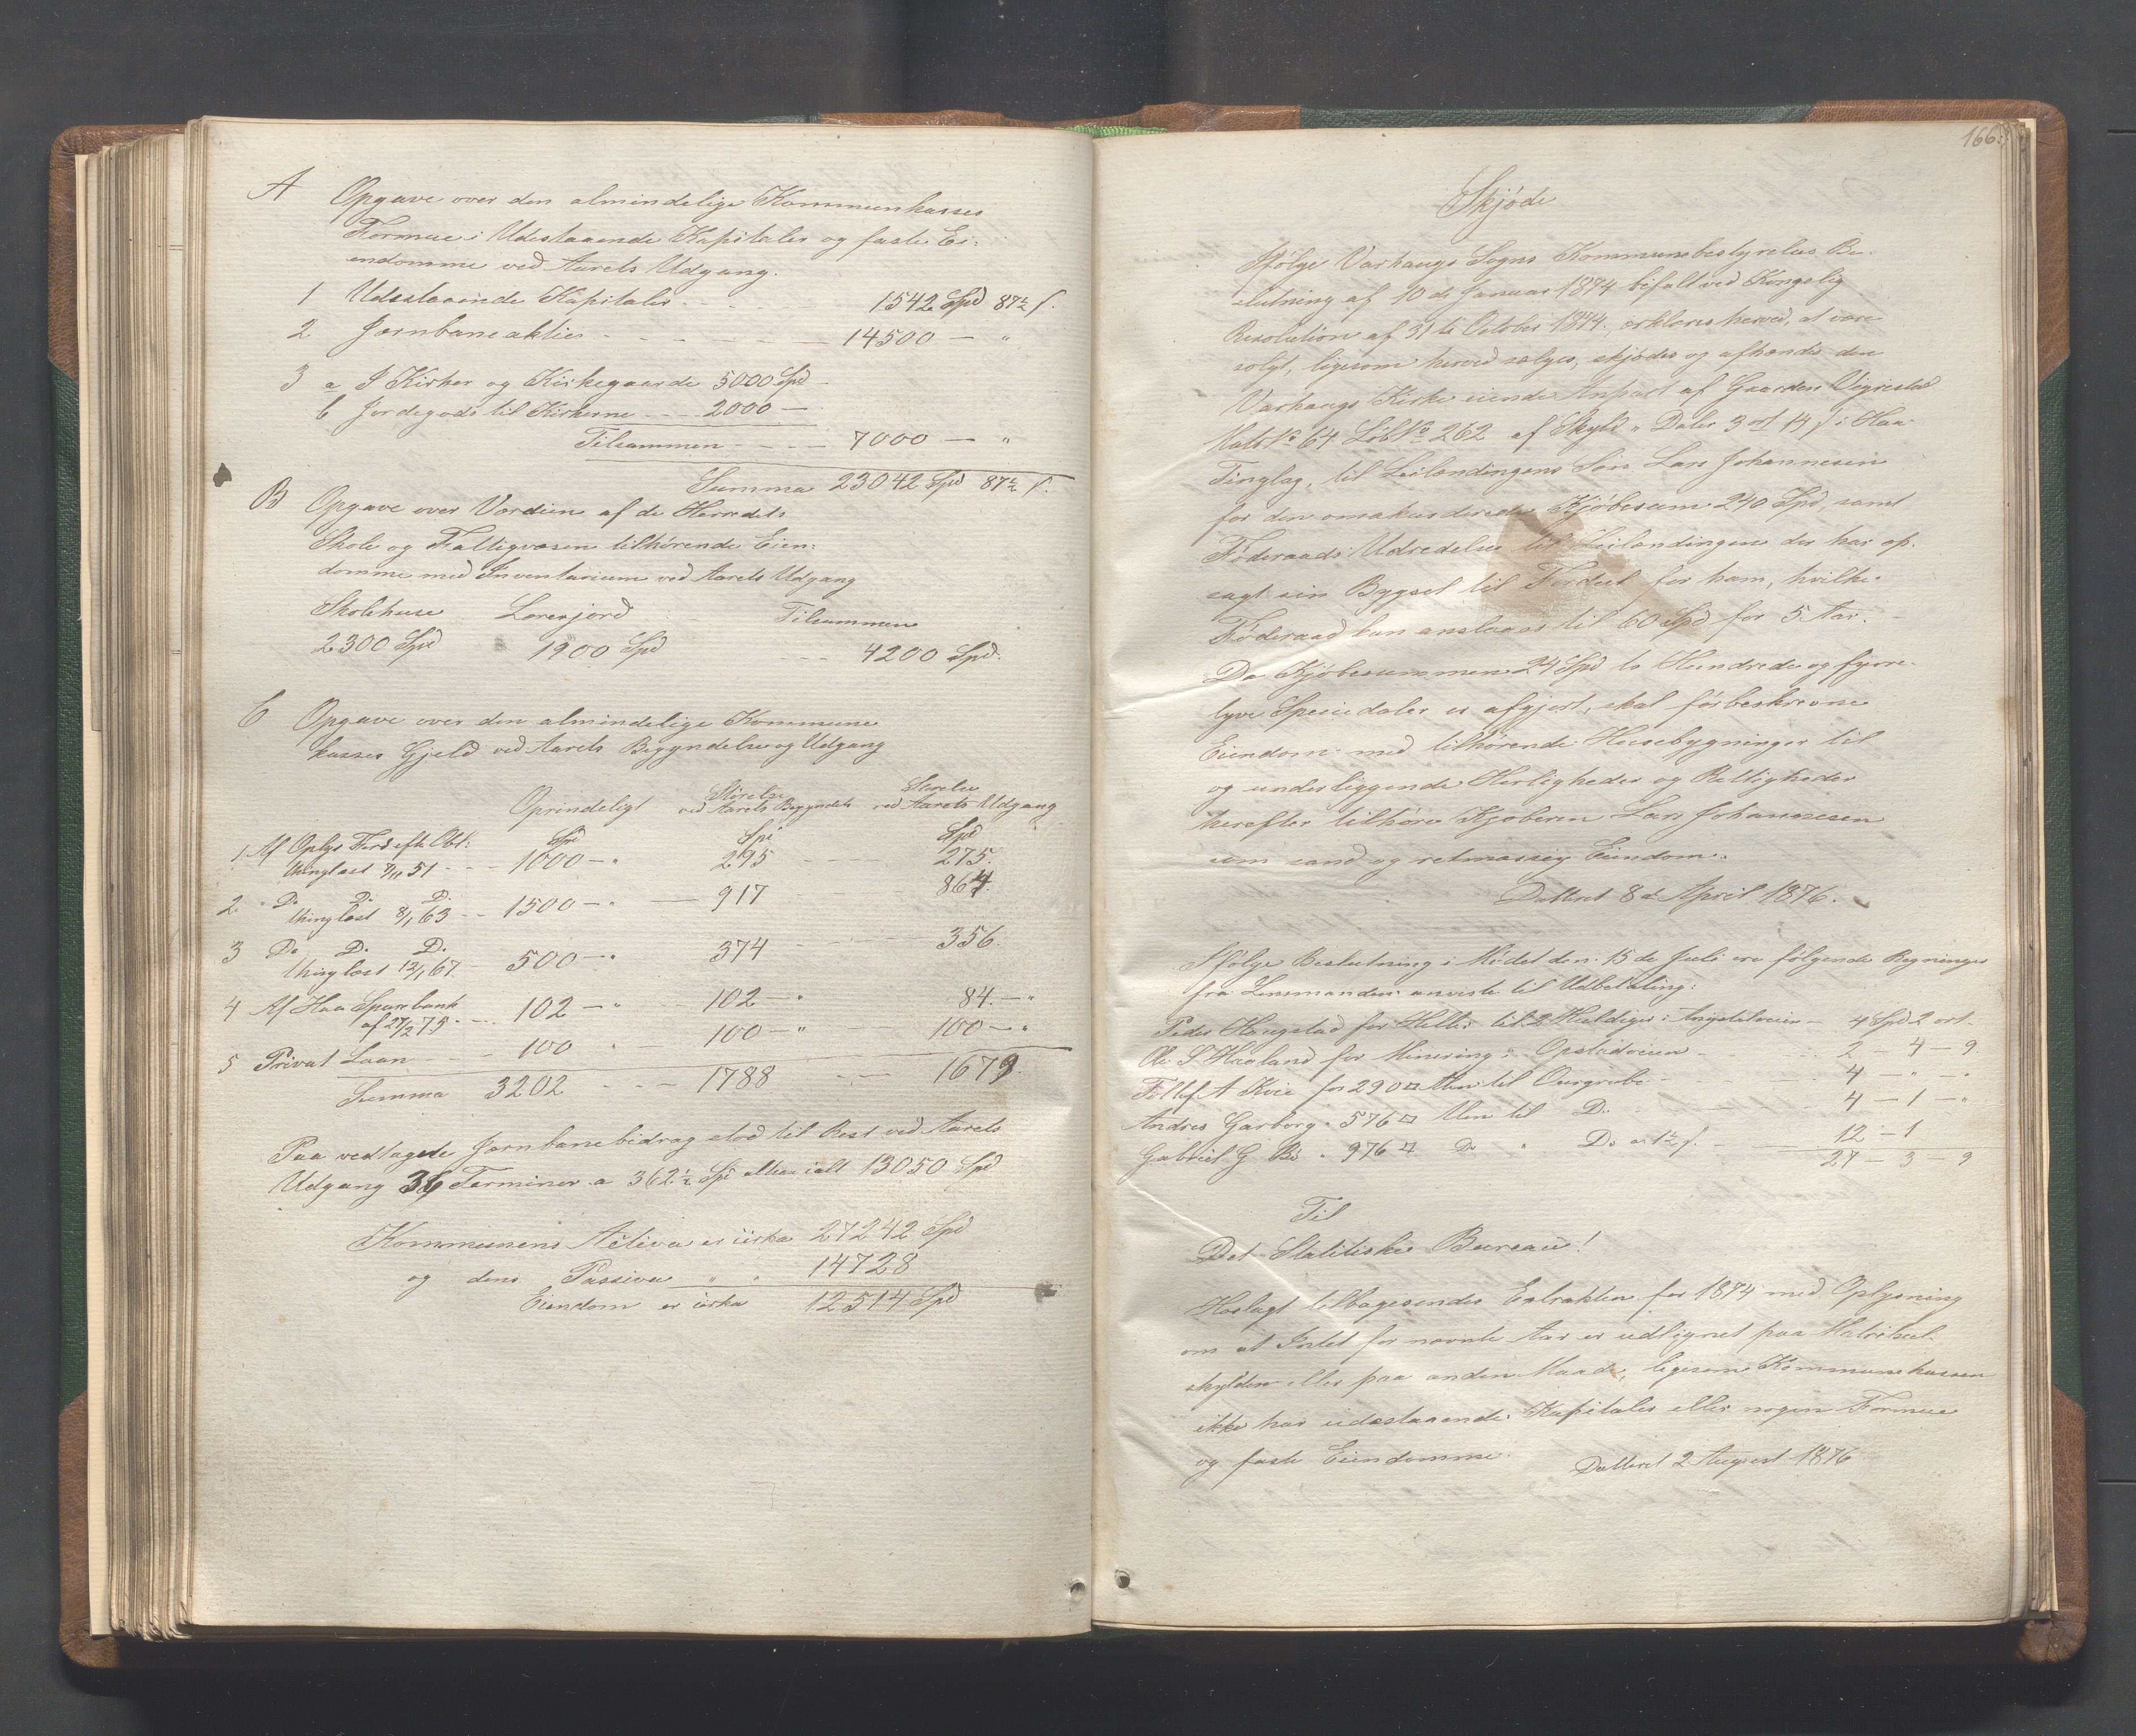 A Opgave over den almindelige Kommunkasses
Formue i Udestaaende Kapitaler og faste Ei-
endomme ved Aarets Udgang.
1 Udestaaende Kapitaler - - 1542 Spd 87½ ſ.
2 Jernbaneaktier - - - - - - 14500 — "
3 a I Kirker og Kirkegaarde 5000 Spd -
b Jordegods til Kirkerne - - - 2000 —
Tilsammen - - - 7000 — "
Summa 23042 Spd 87½ ſ.
B Opgave over Værdien af de Herredets
Skole og Fattigvæsen tilhørende Eien:
domme med Inventarium ved Aarets Udgang
Skolehuse Lærerjord Tilsammen
2300 Spd 1900 Spd - - - 4200 Spd.
C Opgave over den almindelige Kommune
kasses Gjeld ved Aarets Begyndelse og Udgang
Oprindeligt Størelse ved Aarets Begyndels Størelse ved Aarets Udgang
1 Af Oplys Fond efter Obl: Spd Spd Spd
thinglæst 9/11 51 - - - 1000 — " 295 - - - 275.
2 Do Do Do
thinglæst 8/1 63 - - 1500 — " — 917 - - 864.
3 Do Do Do
thinglæst 12/1 67 - 500 — " 374 - - - 356.
4 Af Haa Sparebank
af 27/2 75 - - - 102 — " - 102 — " 84. — "
5 Privat Laan - - - 100 " - 100 — " - - 100 — "
Summa 3202 - - - 1788 - - - 1679.
Paa vedtagede Jernbanebidrag stod til Rest ved Aarets
Udgang 36 Terminer a 362½ Spd altsaa ialt 13050 Spd
Kommunens Activa er cirka 27242 Spd
og dens Passiva " " 14728
Eiendom er cirka 12514 Spd
166.
Skjøde
Ifølge Varhaugs Sogns Kommunebestyrelses Be-
slutning af 10de Januar 1874 bifalt ved Kongelig
Resolution af 31te October 1874, erklæres herved, at være
solgt, ligesom herved sælges, skjødes og afhændes den
Varhaugs Kirke eiende Anpart af Gaarden Vigrestad
Matr No 64 Løb No 262 af Skyld " Daler 3 ort 14 ſ i Haa
Tinglag, til Leilændingens Søn Lars Johannesen
for den omakorderede Kjøbesum 240 Spd, samt
Føderaads Udredelse til Leilændingen der har op-
sagt sin Bygsel til Fordeel for ham, hvilke
Føderaad kan anslaaes til 60 Spd for 5 Aar. -
Da Kjøbesummen 24 Spd to Hundrede og fyrre-
tyve Speciedaler er afgjort, skal forbeskrevne
Eiendom med tilhørende Husebygninger til
og underliggende Herligheder og Rettigheder
herefter tilhøre Kjøberen Lars Johannesen
som sand og retmæssig Eiendom.
Datteret 8de April 1876.
Ifølge Beslutning i Mødet den 15de Juli ere følgende Regninger
fra Lensmanden anviste til Udbetaling:
Peder Haugstad for Heller til 2 - 4 Spd 2 ort -
Ole S Haaland for Minering i Opstadveien - 2 - 4 - 9
Tollef A Kvie for 290 □ Alen til Ourgrube - 4 - " - "
Andres Garborg " 576 □ Alen til Do - 4 - 1 - "
Gabriel G Bø " 976 □ Do " Do a 1½ ſ. - 12 - 1
27 - 3 - 9
Til
Det Statitiske Bureau!
Hoslagt tilbagesendes Extrakten for 1874 med Oplysning
om at Intet for nævnte Aar er udlignet paa Matrikul-
skylden eller paa anden Maade, ligesom Kommunekassen
ikke har udestaaende Kapitaler eller nogen Formue
og faste Eiendomme.
Datteret 2 August 1876